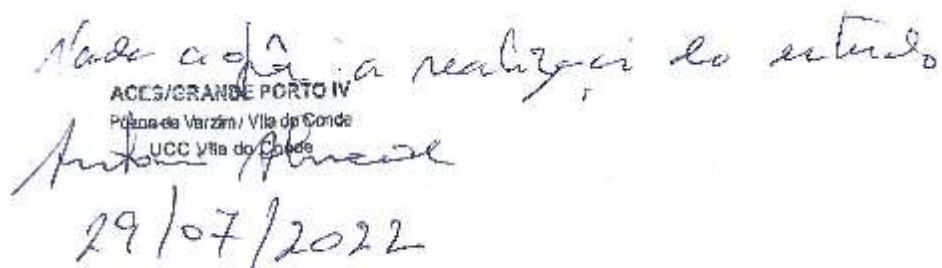 Nada a opôr à realização do estudo
ACES/GRANDE PORTO IV
Póvoa de Varzim / Vila do Conde
UCC Vila do Conde
29/07/2022